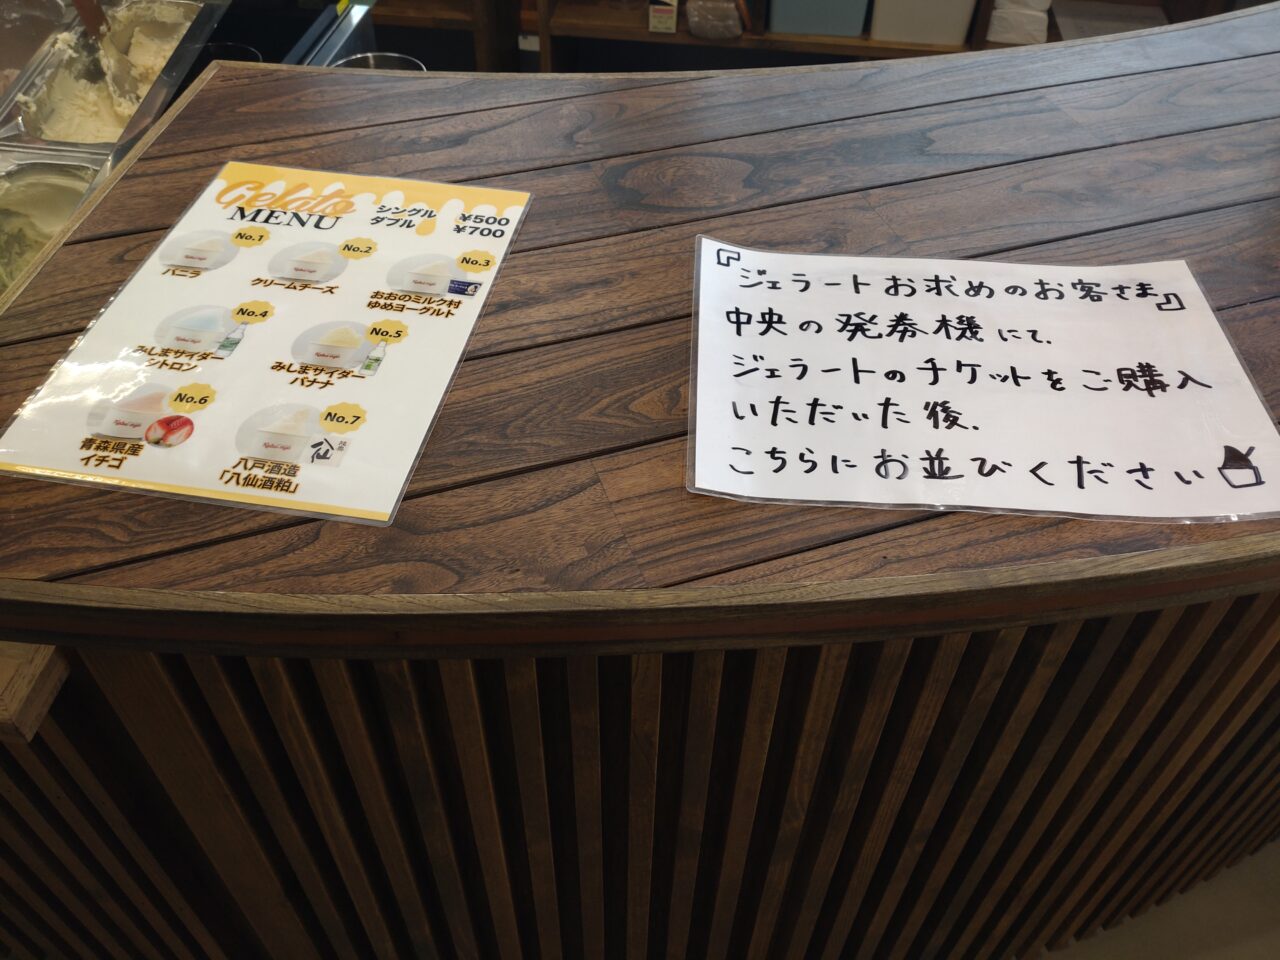 Gelato
MENU
シングル ¥500
ダブル ¥700
No.1
バニラ
No.2
クリームチーズ
No.3
おおのミルク村
ゆめヨーグルト
No.4
みしまサイダー
シトロン
No.5
みしまサイダー
バナナ
No.6
青森県産
イチゴ
No.7
八仙
八戸酒造
「八仙酒粕」
『ジェラートお求めのお客さま』
中央の発券機にて、
ジェラートのチケットをご購入
いただいた後、
こちらにお並びください